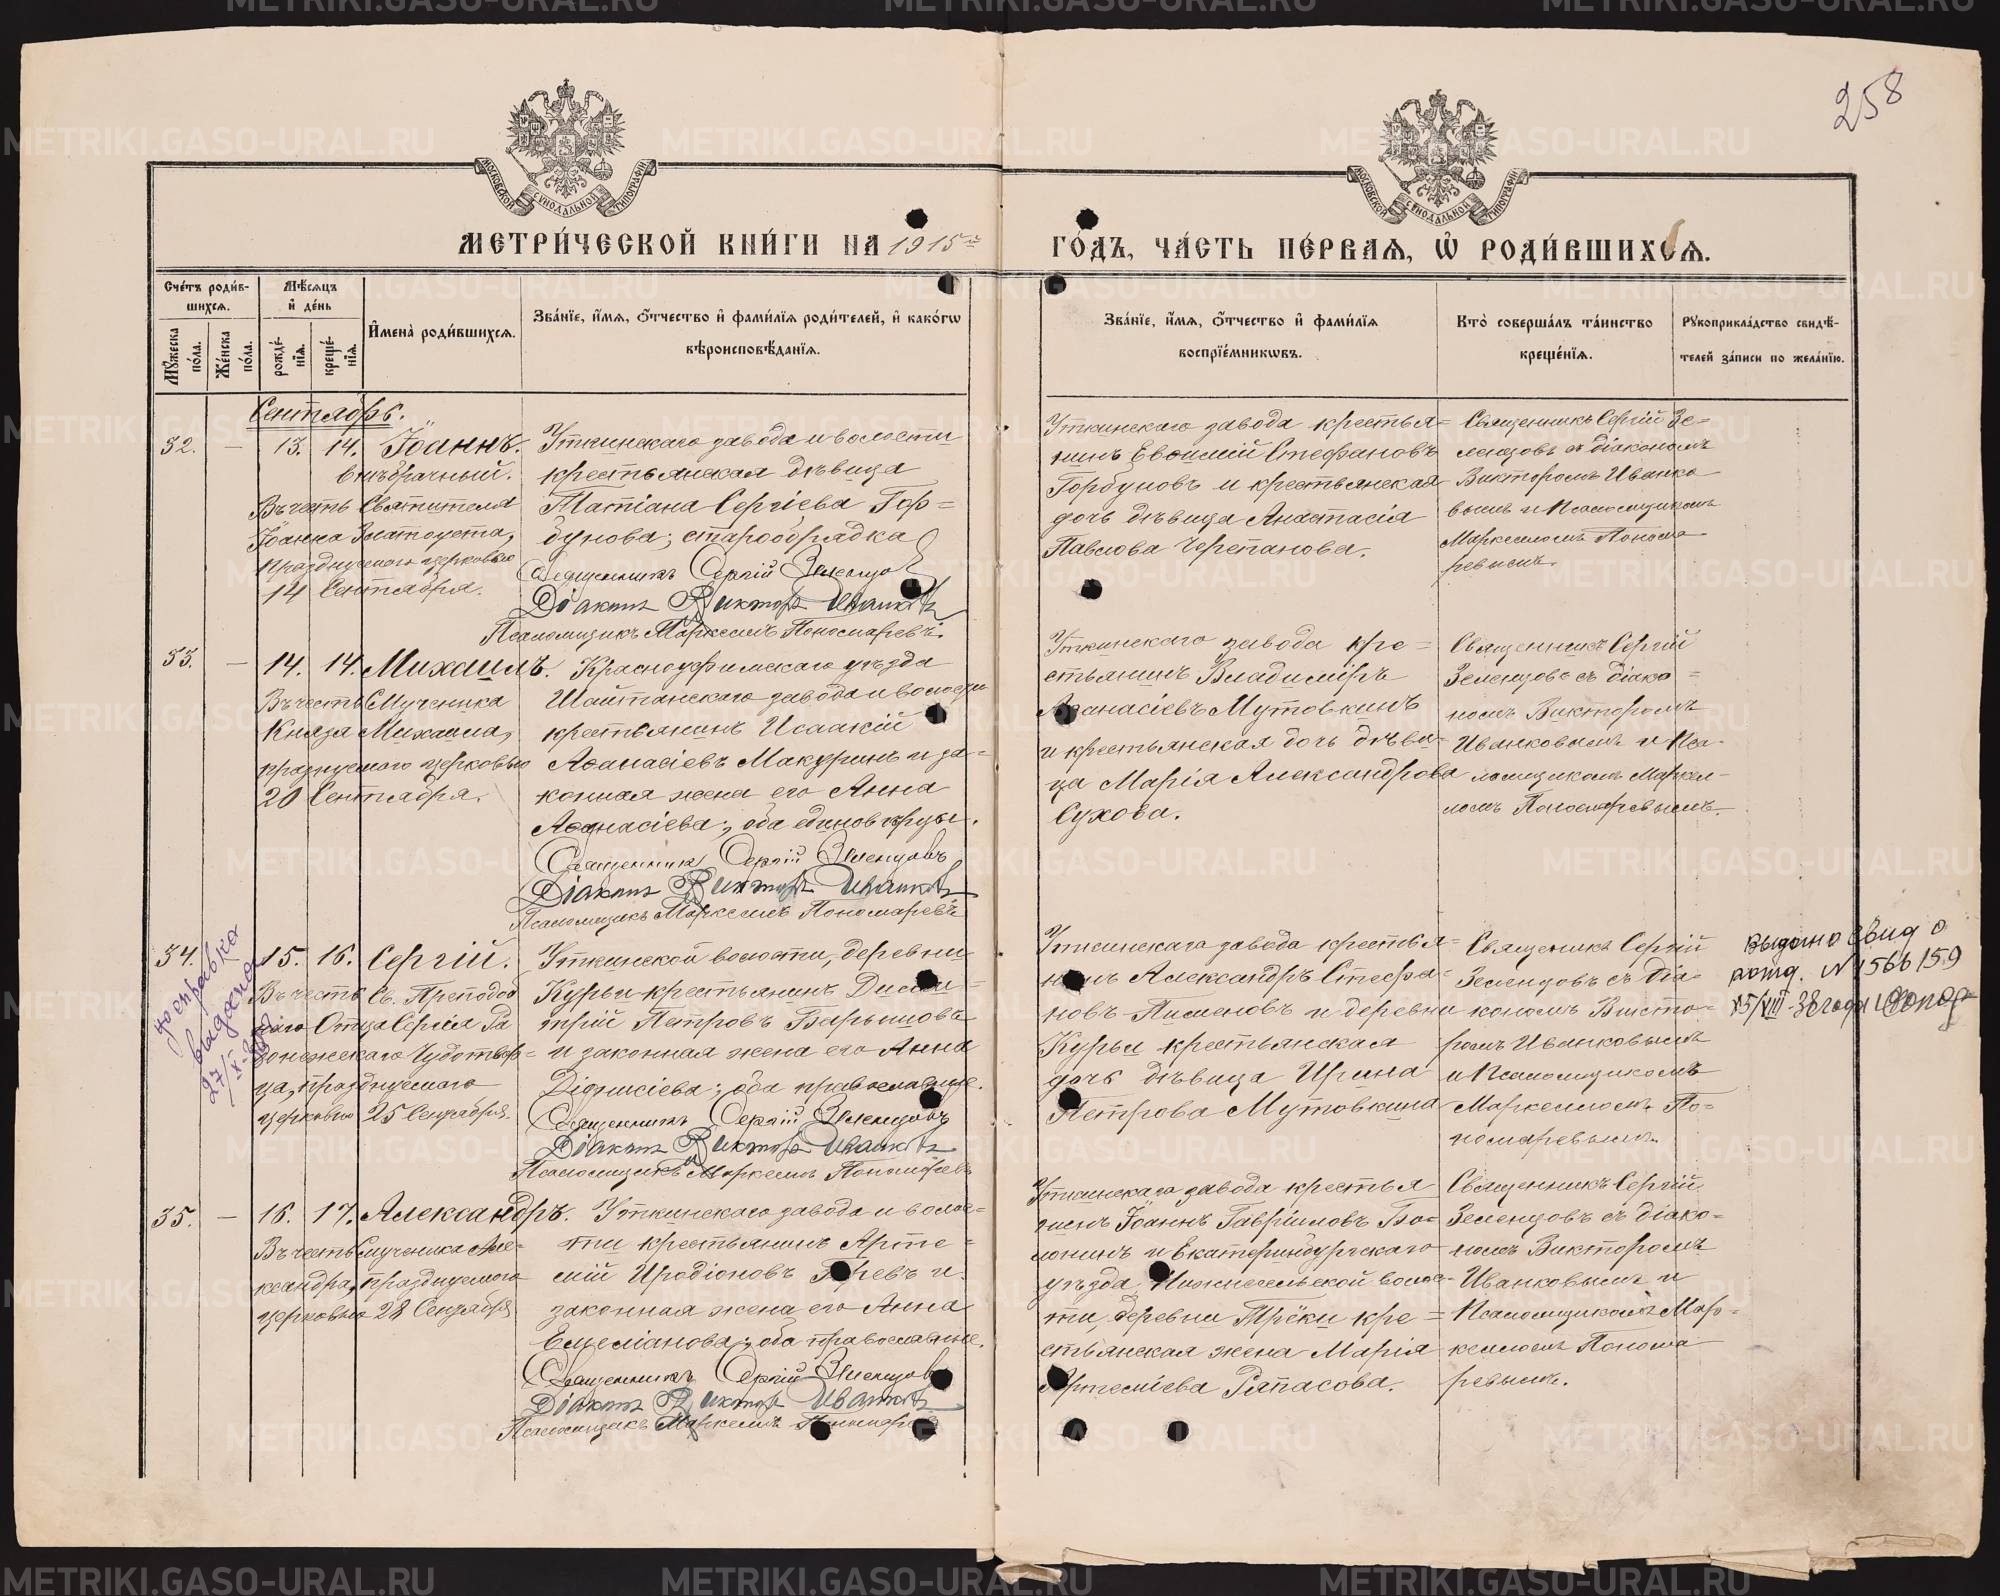 258
МОСКОВСКОЙ СѴНОДАЛЬНОЙ ТИПОГРАФІИ
МОСКОВСКОЙ СѴНОДАЛЬНОЙ ТИПОГРАФІИ
МЕТРИ́ЧЕСКОЙ КНИ́ГИ НА 1915й ГО́ДЪ, ЧА́СТЬ ПЕ́РВАЯ, Ѿ РОДИ́ВШИХСЯ.
Сче́тъ роди́в-
шихся.
Мѣсяцъ
и де́нь
Мужеска по́ла.
Же́нска по́ла.
рожде́-
нія.
креще́-
нія.
Имена̀ роди́вшихся.
Зва́ніе, и́мя, о́тчество и фами́лія роди́телей, и како́гѡ
вѣроисповѣ́данія.
Зва́ніе, и́мя, о́тчество и фами́лія
воспріе́мникѡвъ.
Кто̀ соверша́лъ та́инство
креще́нія.
Рукоприкла́дство свидѣ́-
телей за́писи по жела́нію.
Сентябрь.
32. — 13. 14. Іоаннъ.
внѣбрачный.
Въ честь Святителя
Іоанна Златоуста,
празднуемого церковью
14 Сентября.
Уткинскаго завода и волости
крестьянская дѣвица
Татіана Сергіева Гор=
бунова; старообрядка
Священникъ Сергій Зеленцов
Діаконъ Викторъ Иванковъ
Псаломщикъ Маркеллъ Пономаревъ.
Уткинскаго завода крестья=
нинъ Евѳимій Стефановъ
Горбуновъ и крестьянская
дочь дѣвица Анастасія
Павлова Черепанова.
Священникъ Сергій Зе-
ленцовъ съ діакономъ
Викторомъ Иванко
вымъ и Псаломщикомъ
Маркелломъ Понома
ревымъ.
33. — 14. 14. Михаилъ.
Въ честь Мученика
Князя Михаила,
празнуемого церковью
20 Сентября.
Красноуфимскаго уѣзда
Шайтанскаго завода и волости
крестьянинъ Исаакій
Аѳанасіевъ Макуринъ и за=
конная жена его Анна
Аѳанасіева; оба единовѣрцы.
Священникъ Сергій Зеленцовъ
Діаконъ Викторъ Иванковъ
Псаломщикъ Маркеллъ Пономаревъ
Уткинскаго завода кре=
стьянинъ Владиміръ
Аѳанасіевъ Мутовкинъ
и крестьянская дочь дѣви=
ца Марія Александрова
Сухова.
Священникъ Сергій
Зеленцовъ съ діако=
номъ Викторомъ
Иванковымъ и Пса-
ломщикомъ Маркел-
ломъ Пономаревымъ.
34. 15. 16. Сергій.
справка
выдана
27/XI
Въ честь Св. Преподоб
наго Отца Сергія Ра
донежскаго Чудотвор=
ца, празднуемого
церковью 25 Сентября.
Уткинской волости, деревни
Курьи крестьянинъ Дими=
трій Петровъ Барышовъ
и законная жена его Анна
Діонисіева; оба православные.
Священникъ Сергій Зеленцовъ
Діаконъ Викторъ Иванковъ
Псаломщикъ Маркеллъ Пономаревъ
Уткинскаго завода крестья=
нинъ Александръ Стефа=
новъ Пименовъ и деревни
Курьи крестьянская
дочь дѣвица Ирина
Петрова Мутовкина
Священникъ Сергій
Зеленцовъ съ діа=
кономъ Викто=
ромъ Иванковымъ
и Псаломщикомъ
Маркелломъ По=
номаревымъ.
выдано Свид о
рожд. № 1566159
15/VIII-38 года
35. — 16. 17. Александръ.
Въ честь мученика Але=
ксандра, празднуемого
церковью 28 Сентября
Уткинскаго завода и волос=
ти крестьянинъ Арте=
мій Иродіоновъ и
законная жена его Анна
Емеліанова; оба православные.
Священникъ Сергій Зеленцовъ
Діаконъ Викторъ Иванковъ
Псаломщикъ Маркеллъ Пономаревъ
Уткинскаго завода крестья
нинъ Іоаннъ Гавріиловъ Бо=
лонинъ и Екатеринбургскаго
уѣзда, Нижнесельской волос=
ти, деревни Трёки кре=
стьянская жена Марія
Артеміева Рапасова.
Священникъ Сергій
Зеленцовъ съ діако=
номъ Викторомъ
Иванковымъ и
Псаломщикомъ Мар=
келломъ Понома
ревымъ.
METRIKI.GASO-URAL.RU